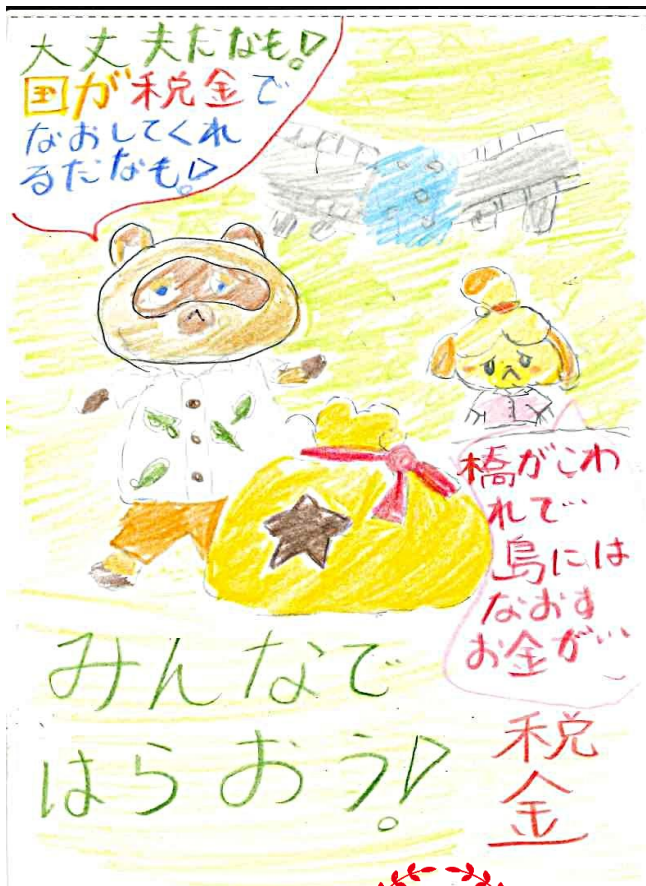 大丈夫だなも!
国が税金で
なおしてくれ
るだなも!
橋がこわ
れて…
島には
なおす
お金が…
みんなで
はらおう!
税金